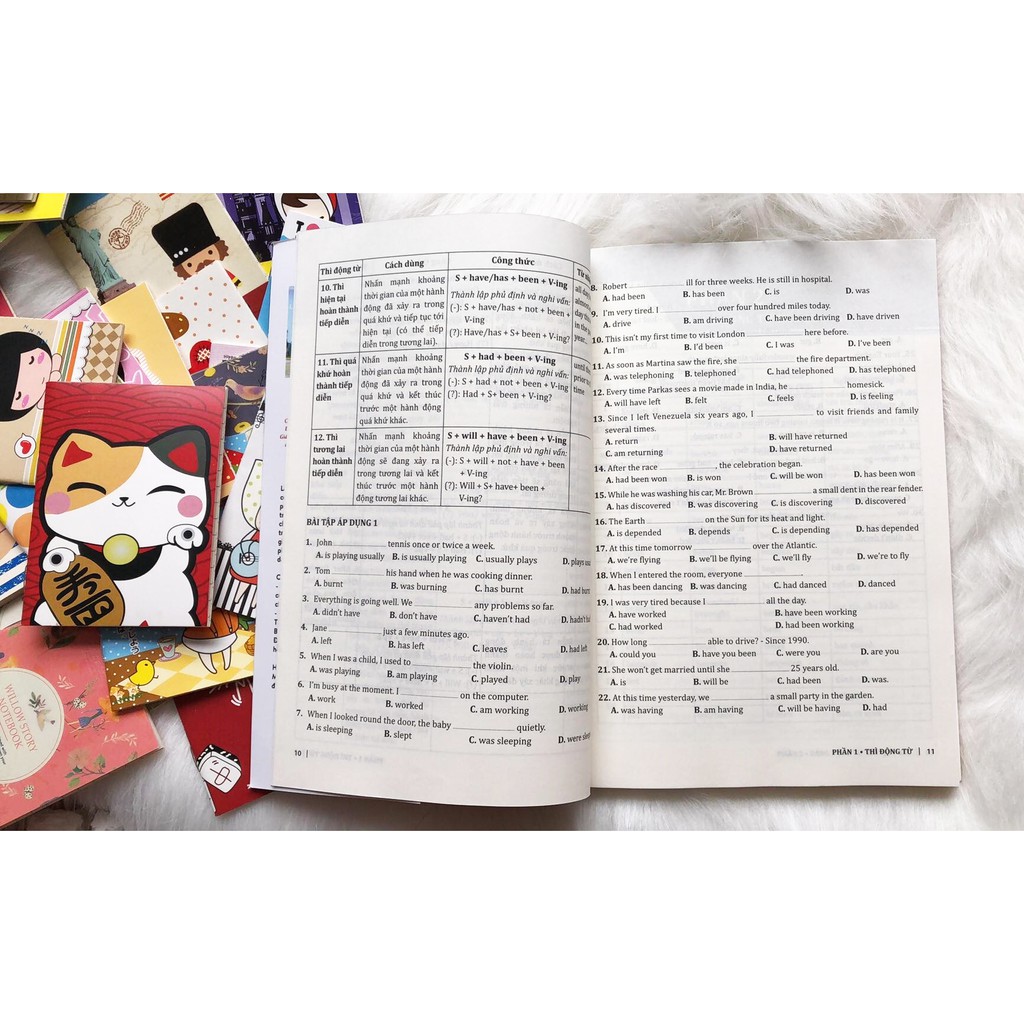 Thì động từ
Cách dùng
Công thức
10. Thì
hiện tại
hoàn thành
tiếp diễn
Nhấn mạnh khoảng
thời gian của một hành
động đã xảy ra trong
quá khứ và tiếp tục tới
hiện tại (có thể tiếp
diễn trong tương lai).
S + have/has + been + V-ing
Thành lập phủ định và nghi vấn:
(-): S + have/has + not + been +
V-ing
(?): Have/has + S+ been + V-ing?
11. Thì quá
khứ hoàn
thành tiếp
diễn
Nhấn mạnh khoảng
thời gian của một hành
động đã xảy ra trong
quá khứ và kết thúc
trước một hành động
quá khứ khác.
S + had + been + V-ing
Thành lập phủ định và nghi vấn:
(-): S + had + not + been + V-ing
(?): Had + S+ been + V-ing?
12. Thì
tương lai
hoàn thành
tiếp diễn
Nhấn mạnh khoảng
thời gian của một hành
động sẽ đang xảy ra
trong tương lai và kết
thúc trước một hành
động tương lai khác.
S + will + have + been + V-ing
Thành lập phủ định và nghi vấn:
(-): S + will + not + have + been
+ V-ing
(?): Will + S+ have+ been +
V-ing?
BÀI TẬP ÁP DỤNG 1
1. John __________ tennis once or twice a week.
A. is playing usually B. is usually playing C. usually plays D. plays usu
2. Tom __________ his hand when he was cooking dinner.
A. burnt B. was burning C. has burnt D. had burn
3. Everything is going well. We __________ any problems so far.
A. didn't have B. don't have C. haven't had D. hadn't ha
4. Jane __________ just a few minutes ago.
A. left B. has left C. leaves D. had left
5. When I was a child, I used to __________ the violin.
A. was playing B. am playing C. played D. play
6. I'm busy at the moment. I __________ on the computer.
A. work B. worked C. am working D. working
7. When I looked round the door, the baby __________ quietly.
A. is sleeping B. slept C. was sleeping D. were sleep
10 |
8. Robert __________ ill for three weeks. He is still in hospital.
A. had been B. has been C. is D. was
9. I'm very tired. I __________ over four hundred miles today.
A. drive B. am driving C. have been driving D. have driven
10. This isn't my first time to visit London __________ here before.
A. I'm B. I'd been C. I was D. I've been
11. As soon as Martina saw the fire, she __________ the fire department.
A. was telephoning B. telephoned C. had telephoned D. has telephoned
12. Every time Parkas sees a movie made in India, he __________ homesick.
A. will have left B. felt C. feels D. is feeling
13. Since I left Venezuela six years ago, I __________ to visit friends and family
several times.
A. return B. will have returned
C. am returning D. have returned
14. After the race __________, the celebration began.
A. had been won B. is won C. will be won D. has been won
15. While he was washing his car, Mr. Brown __________ a small dent in the rear fender.
A. has discovered B. was discovering C. is discovering D. discovered
16. The Earth __________ on the Sun for its heat and light.
A. is depended B. depends C. is depending D. has depended
17. At this time tomorrow __________ over the Atlantic.
A. we're flying B. we'll be flying C. we'll fly D. we're to fly
18. When I entered the room, everyone __________.
A. has been dancing B. was dancing C. had danced D. danced
19. I was very tired because I __________ all the day.
A. have worked B. have been working
C. had worked D. had been working
20. How long __________ able to drive? - Since 1990.
A. could you B. have you been C. were you D. are you
21. She won't get married until she __________ 25 years old.
A. is B. will be C. had been D. was.
22. At this time yesterday, we __________ a small party in the garden.
A. was having B. am having C. will be having D. had
PHẦN 1 • THÌ ĐỘNG TỪ | 11
WILLOW STORY
NOTEBOOK